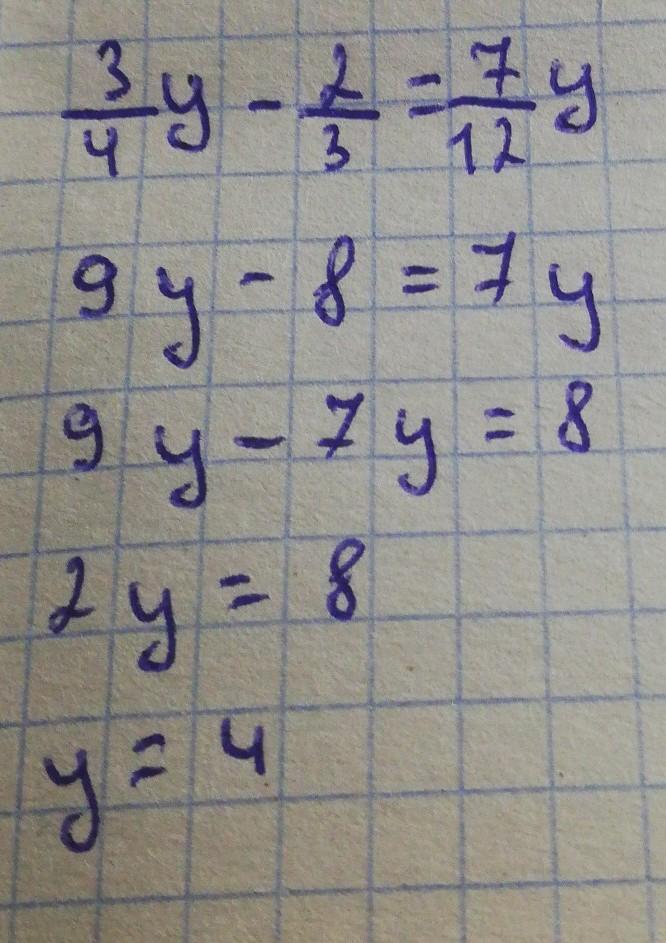 3/4 y - 2/3 = 7/12 y
9y - 8 = 7y
9y - 7y = 8
2y = 8
y = 4